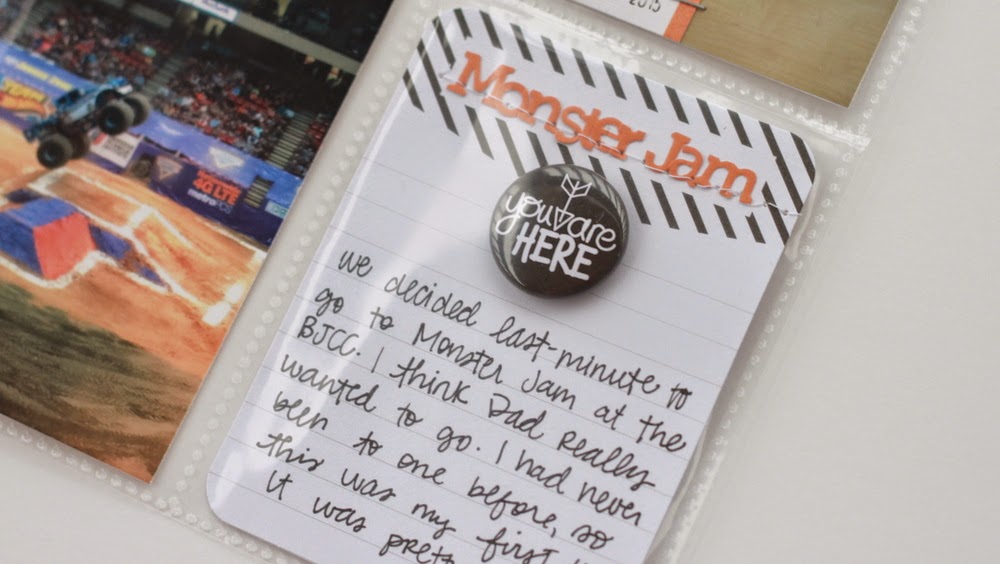 2015
Monster Jam
you are
HERE
we decided last-minute to
go to Monster Jam at the
BJCC. I think Dad really
wanted to go. I had never
been to one before, so
this was my first
it was
4G LTE
metroPCS